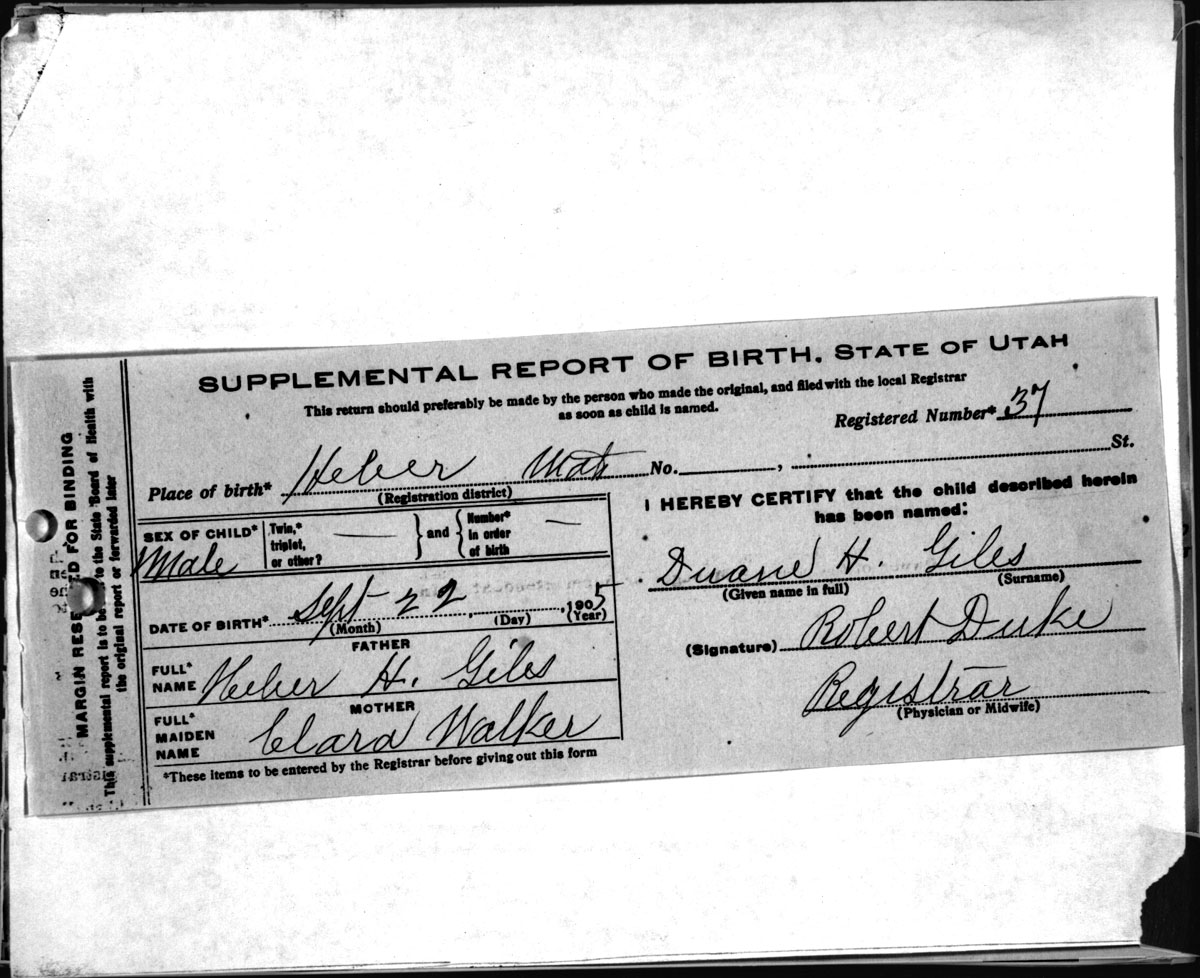 SUPPLEMENTAL REPORT OF BIRTH. STATE OF UTAH
This return should preferably be made by the person who made the original, and filed with the local Registrar
as soon as child is named.
Registered Number* 37
Place of birth* Heber No. , St.
(Registration district)
SEX OF CHILD* Male
Twin,* triplet, or other? — } and { Number* in order of birth —
DATE OF BIRTH* Sept 22, , 1905
(Month) (Day) (Year)
FATHER
FULL* NAME Heber H. Giles
MOTHER
FULL* MAIDEN NAME Clara Walker
*These items to be entered by the Registrar before giving out this form
I HEREBY CERTIFY that the child described herein
has been named:
Duane H. Giles
(Given name in full) (Surname)
(Signature) Robert Duke
Registrar
(Physician or Midwife)
MARGIN RESERVED FOR BINDING
This supplemental report is to be to the State Board of Health with
the original report or forwarded later